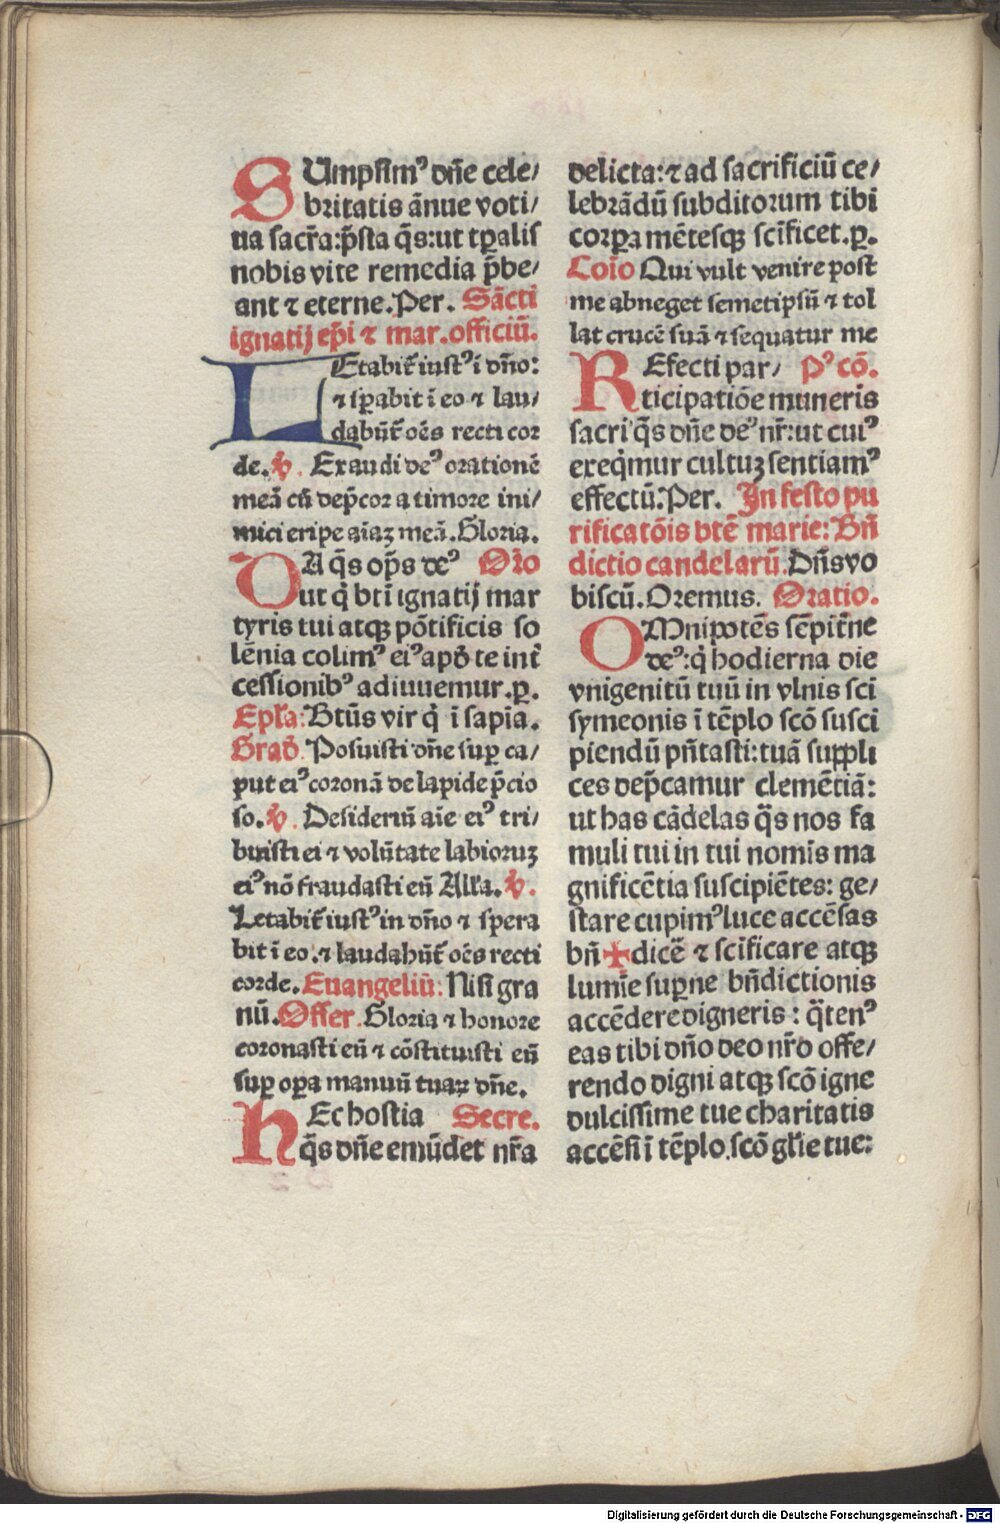 SUmpsimꝰ dn̄e cele/
britatis ānue voti/
ua sacr̄a:p̄sta q̄s:ut tꝑalis
nobis vite remedia p̄be/
ant ⁊ eterne.Per. Sācti
ignatij ep̄i ⁊ mar.officiū.
LEtabit̄ iustꝰ ī dn̄o:
⁊ sꝑabit ī eo ⁊ lau/
dabūt̄ oēs recti cor
de.℣. Exaudi deꝰ orationē
meā cū dep̄cor a timore ini/
mici eripe aīaꝫ meā.Gloria.
DA q̄s op̄s deꝰ Oro
ut q̄ bt̄i ignatij mar
tyris tui atqꝫ pōtificis so
lēnia colimꝰ eiꝰ apđ te int̄
cessionibꝰ adiuuemur.ꝑ.
Epl̄a: Bt̄us vir q̄ ī sapia.
Grad̄. Posuisti dn̄e suꝑ ca/
put eiꝰ coronā de lapide p̄cio
so.℣. Desideriū aīe eiꝰ tri/
buisti ei ⁊ volūtate labioruꝫ
eiꝰ nō fraudasti eū All̄a.℣.
Letabit̄ iustꝰ in dn̄o ⁊ spera
bit ī eo.⁊ laudabūt̄ oēs recti
corde.Euangeliū: Nisi gra
nū.Offer. Gloria ⁊ honore
coronasti eū ⁊ cōstituisti eū
suꝑ oꝑa manuū tuaꝝ dn̄e.
HEc hostia Secre.
q̄s dn̄e emūdet nr̄a
delicta:⁊ ad sacrificiū ce/
lebrādū subditorum tibi
corꝑa mētesqꝫ sc̄ificet.ꝑ.
Coīo Qui vult venire post
me abneget semetipsū ⁊ tol
lat crucē suā ⁊ sequatur me
REfecti par/ Pꝰ cō.
ticipatiōe muneris
sacri q̄s dn̄e deꝰ nr̄:ut cuiꝰ
exeq̄mur cultuꝫ sentiamꝰ
effectū.Per. In festo pu
rificatōis bt̄ē marie: Bn̄
dictio candelarū. Dn̄s vo
biscū.Oremus. Oratio.
OMnipotēs sēpit̄ne
deꝰ:q̄ hodierna die
vnigenitū tuū in vlnis sc̄i
symeonis ī tēplo sc̄ō susci
piendū pn̄tasti:tuā suppli
ces dep̄camur clemētiā:
ut has cādelas q̄s nos fa
muli tui in tui nomīs ma
gnificētia suscipiētes: ge/
stare cupimꝰ luce accēsas
bn̄✠dicē ⁊ sc̄ificare atqꝫ
lumīe suꝑne bn̄dictionis
accēdere digneris: q̄tenꝰ
eas tibi dn̄o deo nr̄o offe/
rendo digni atqꝫ sc̄ō igne
dulcissime tue charitatis
accēsi ī tēplo.sc̄ō gl̄ie tue:
Digitalisierung gefördert durch die Deutsche Forschungsgemeinschaft - DFG